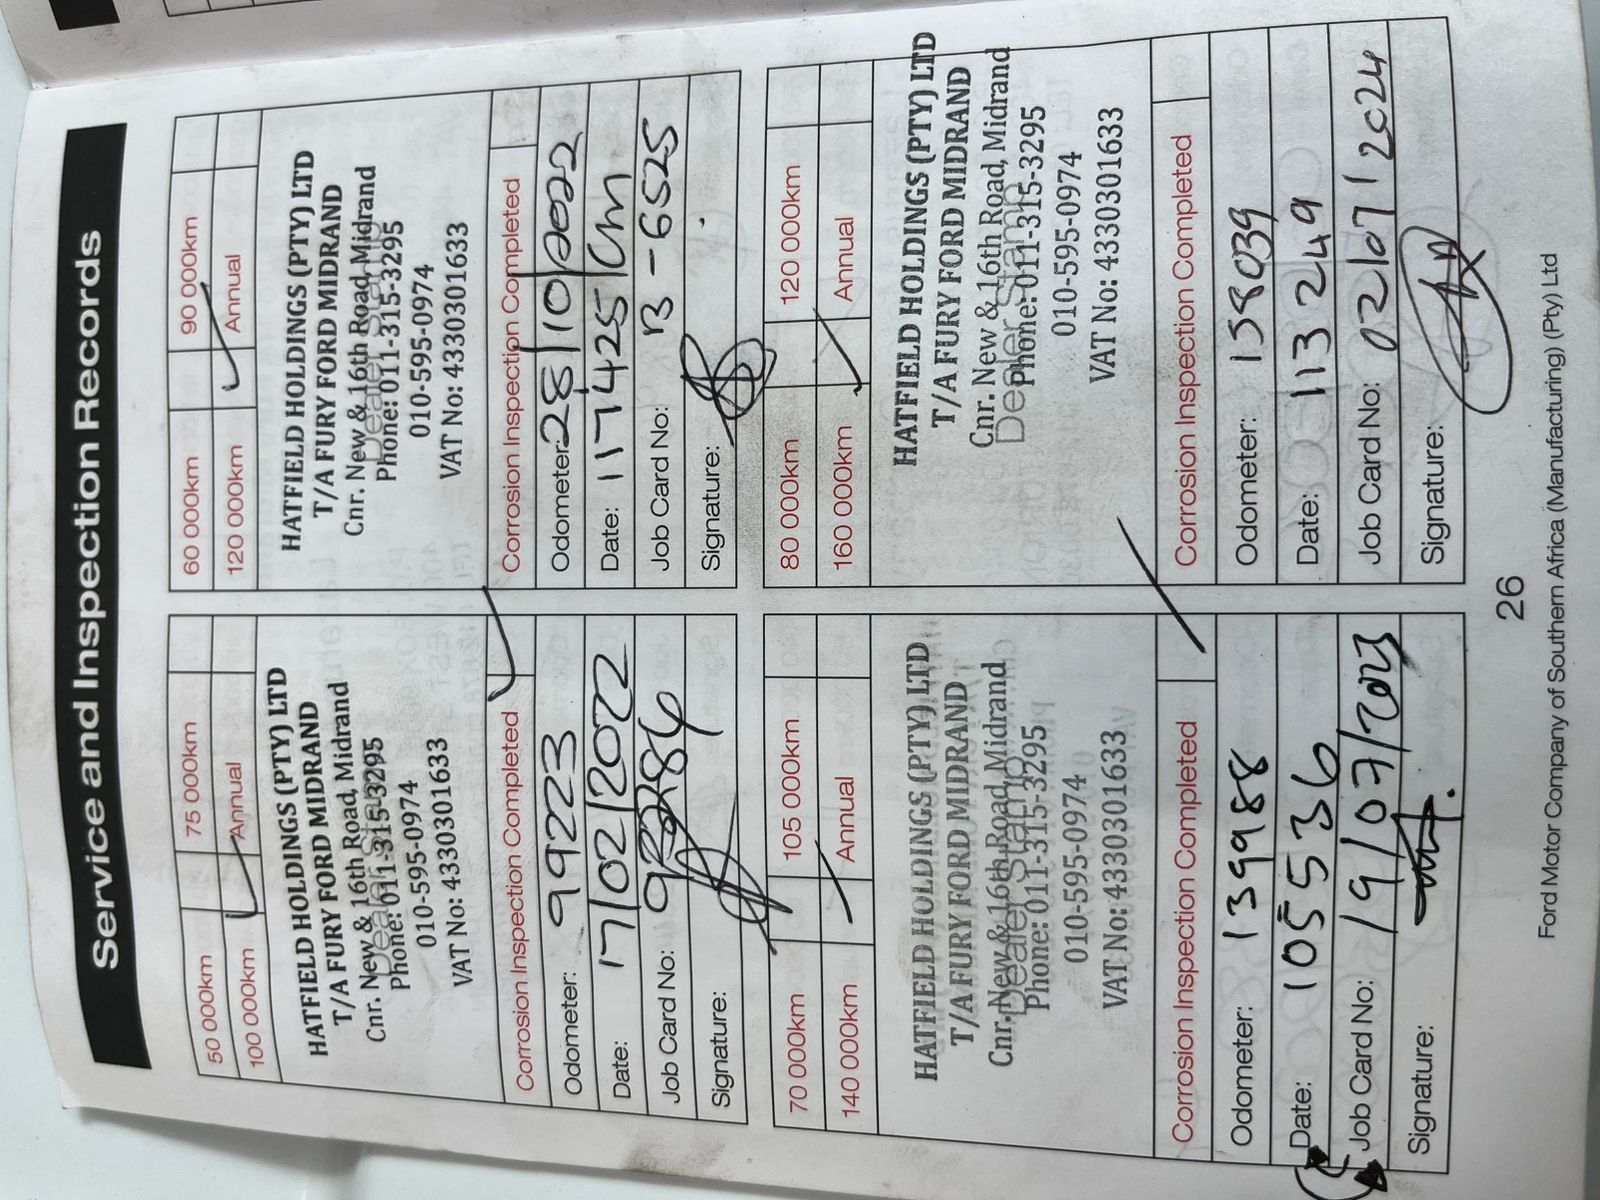 Service and Inspection Records
50 000km
75 000km
100 000km
Annual
HATFIELD HOLDINGS (PTY) LTD
T/A FURY FORD MIDRAND
Cnr. New & 16th Road, Midrand
Dealer Stamp
Phone: 011-315-3295
010-595-0974
VAT No: 4330301633
Corrosion Inspection Completed
Odometer: 99223
Date: 17/02/2022
Job Card No:
Signature:
60 000km
90 000km
120 000km
Annual
HATFIELD HOLDINGS (PTY) LTD
T/A FURY FORD MIDRAND
Cnr. New & 16th Road, Midrand
Dealer Stamp
Phone: 011-315-3295
010-595-0974
VAT No: 4330301633
Corrosion Inspection Completed
Odometer: 28/10/2022
Date: 117425/Cm
Job Card No: B-6525
Signature:
70 000km
105 000km
140 000km
Annual
HATFIELD HOLDINGS (PTY) LTD
T/A FURY FORD MIDRAND
Cnr. New & 16th Road, Midrand
Dealer Stamp
Phone: 011-315-3295
010-595-0974
VAT No: 4330301633
Corrosion Inspection Completed
Odometer: 139988
Date: 105536
Job Card No: 19/07/2023
Signature:
80 000km
120 000km
160 000km
Annual
HATFIELD HOLDINGS (PTY) LTD
T/A FURY FORD MIDRAND
Cnr. New & 16th Road, Midrand
Dealer Stamp
Phone: 011-315-3295
010-595-0974
VAT No: 4330301633
Corrosion Inspection Completed
Odometer: 158039
Date: 113249
Job Card No: 02/07/2024
Signature:
26
Ford Motor Company of Southern Africa (Manufacturing) (Pty) Ltd